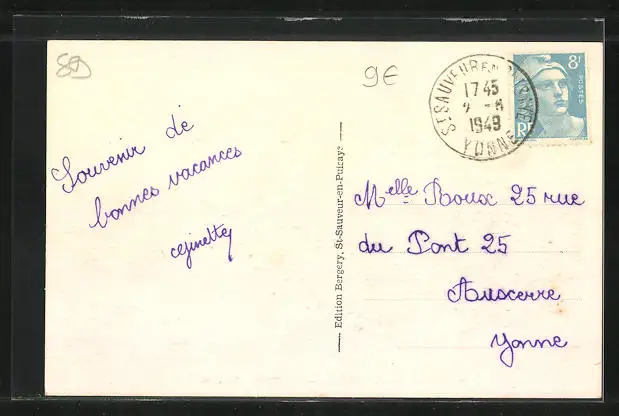 89
9€
Souvenir de
bonnes vacances
St SAUVEUR EN PUISAYE
17 45
2 - 8
1949
YONNE
8f
POSTES
RF
Edition Bergery, St-Sauveur-en-Puisaye
Melle Roux 25 rue
du Pont 25
Auxerre
Yonne